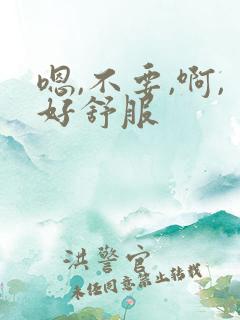 嗯,不要,啊,
好舒服
洪警官
未经同意禁止转载